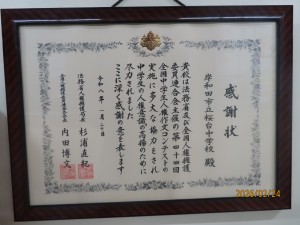 感謝状
岸和田市立桜台中学校 殿
貴校は法務省及び全国人権擁護
委員連合会主催の第四十四回
全国中学生人権作文コンテストの
実施に多大な協力をされ
中学生の人権意識の高揚のために
尽力されました
ここに深く感謝の意を表します
令和八年一月二十日
法務省人権擁護局長 杉浦直紀
全国人権擁護委員連合会長 内田博文
2026/01/24